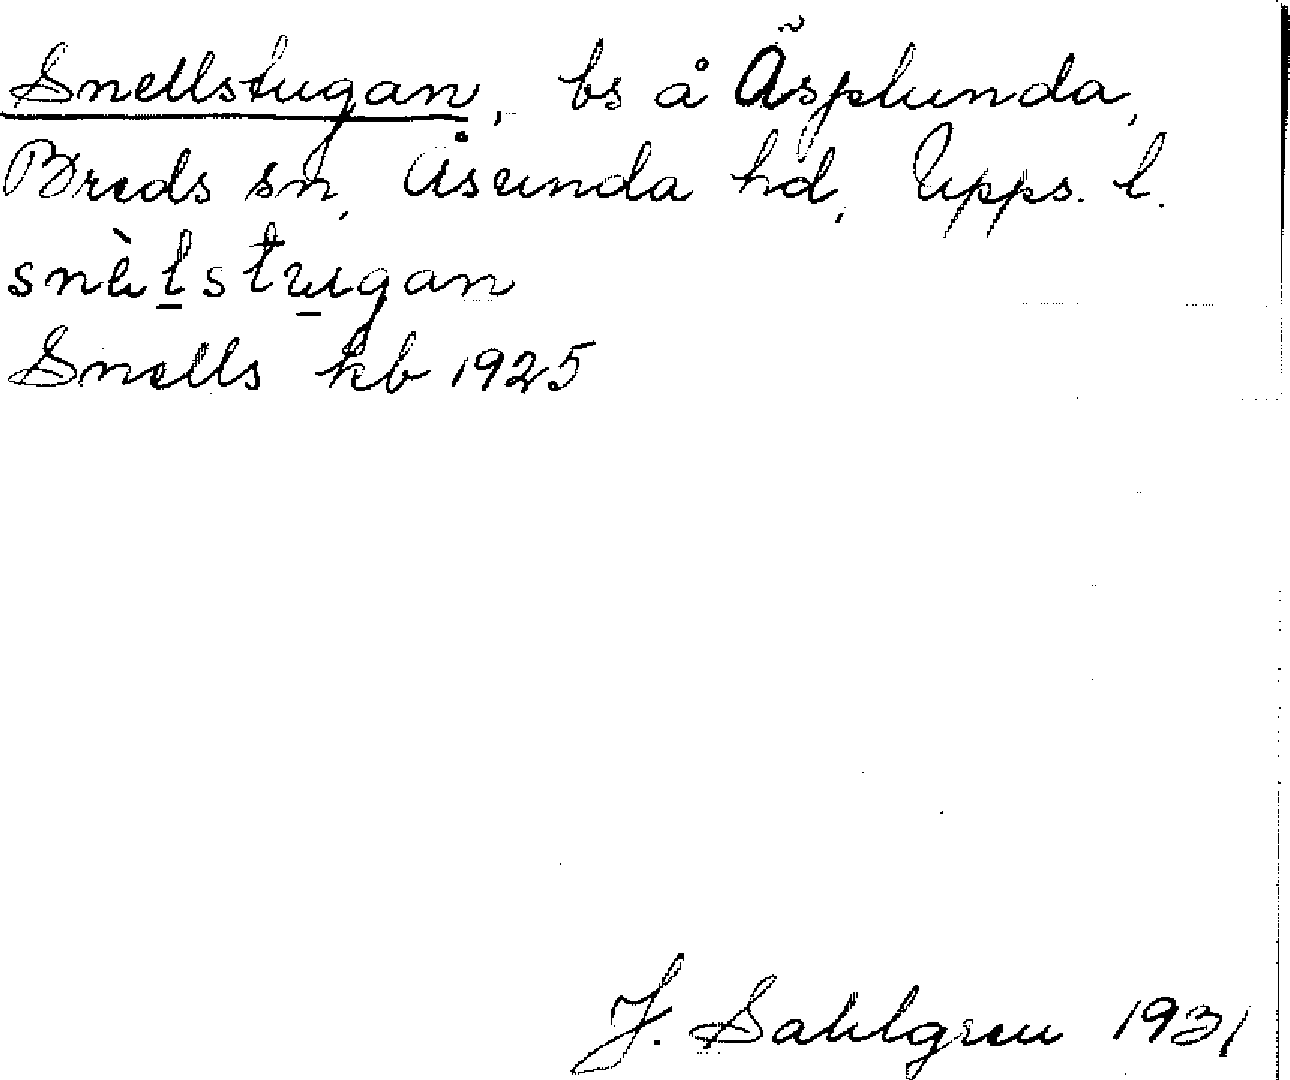 Snellstugan, bs å Äsplunda,
Breds sn, Åsunda hd, Upps. l.
snèl̠stu̠gan
Snells kb 1925
J. Sahlgren 1931